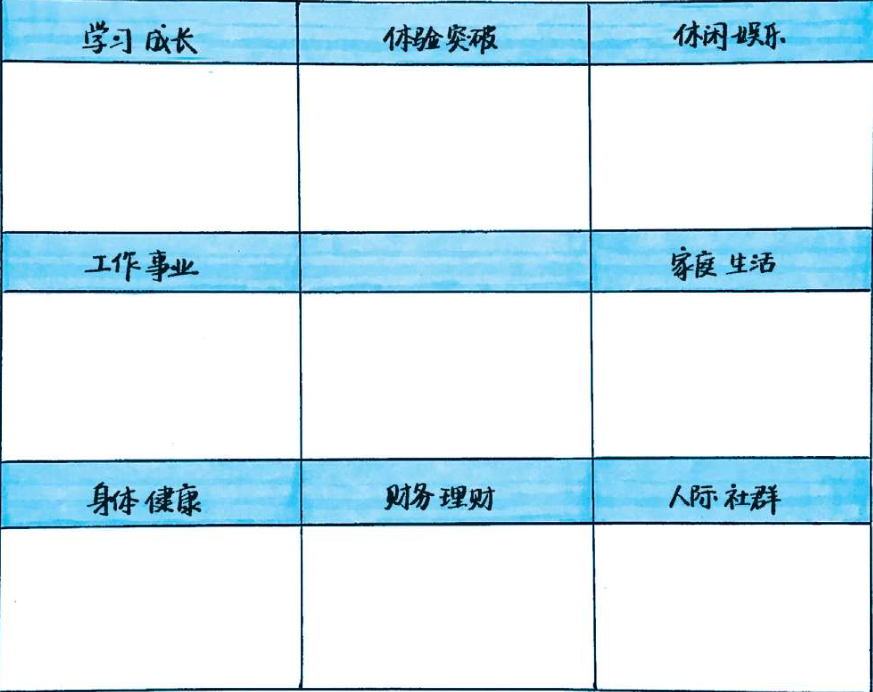 学习成长 体验突破 休闲娱乐
工作事业 家庭生活
身体健康 财务理财 人际社群